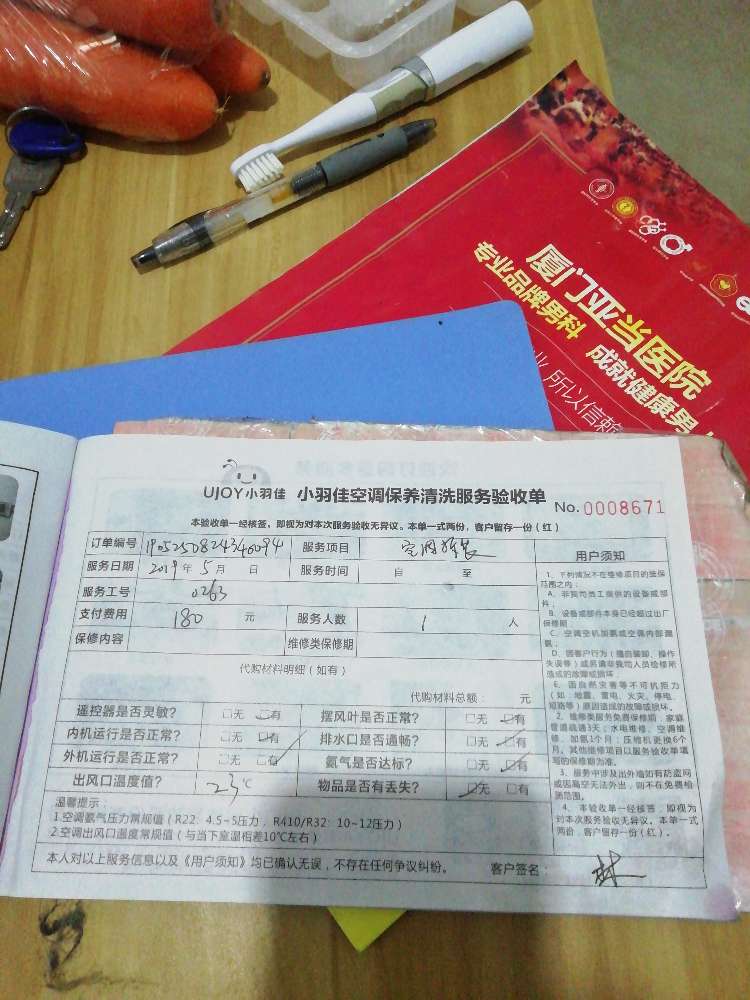 厦门亚当医院
专业品牌男科 成就健康男
所以信赖
UJOY小羽佳 小羽佳空调保养清洗服务验收单 No. 0008671
本验收单一经核签，即视为对本次服务验收无异议。本单一式两份，客户留存一份（红）
订单编号 服务项目 空调
服务日期 2019年5月 日 服务时间 自 至
服务工号 0263
支付费用 180 元 服务人数 1 人
保修内容 维修类保修期
代购材料明细（如有）
代购材料总额： 元
遥控器是否灵敏？ □无 □有 摆风叶是否正常？ □无 □有
内机运行是否正常？ □无 □有 排水口是否通畅？ □无 □有
外机运行是否正常？ □无 □有 氨气是否达标？ □无 □有
出风口温度值？ 23℃ 物品是否有丢失？ □无 □有
温馨提示：
1.空调氨气压力常规值（R22：4.5~5压力，R410/R32：10~12压力）
2.空调出风口温度常规值（与当下室温相差10℃左右）
本人对以上服务信息以及《用户须知》均已确认无误，不存在任何争议纠纷。 客户签名： 林
用户须知
1、下列情况不在维修项目的质保
范围之内：
A、非我司员工提供的设备或部
件；
B、设备或部件本身已经超过出厂
保修期
C、空调空机加氨或空调内部漏
氨；
D、因客户行为（擅自装卸、操作
失误等）或另请非我司人员检修所
造成的故障或损坏。
E、因自然灾害等不可抗拒力
（如：地震、雷电、火灾、停电、
短路等）原因造成的故障或损坏。
2、维修类服务免费保修期：家庭
管道疏通3天；水电维修、空调维
修、加氨1个月；压缩机更换6个
月。其他维修项目以服务验收单填
写的保修期为准。
3、服务中涉及出外墙如有防盗网
或因高空无法外出，则不在免费检
测范围。
4、本验收单一经核签，即视为
对本次服务验收无异议。本单一式
两份，客户留存一份（红）。